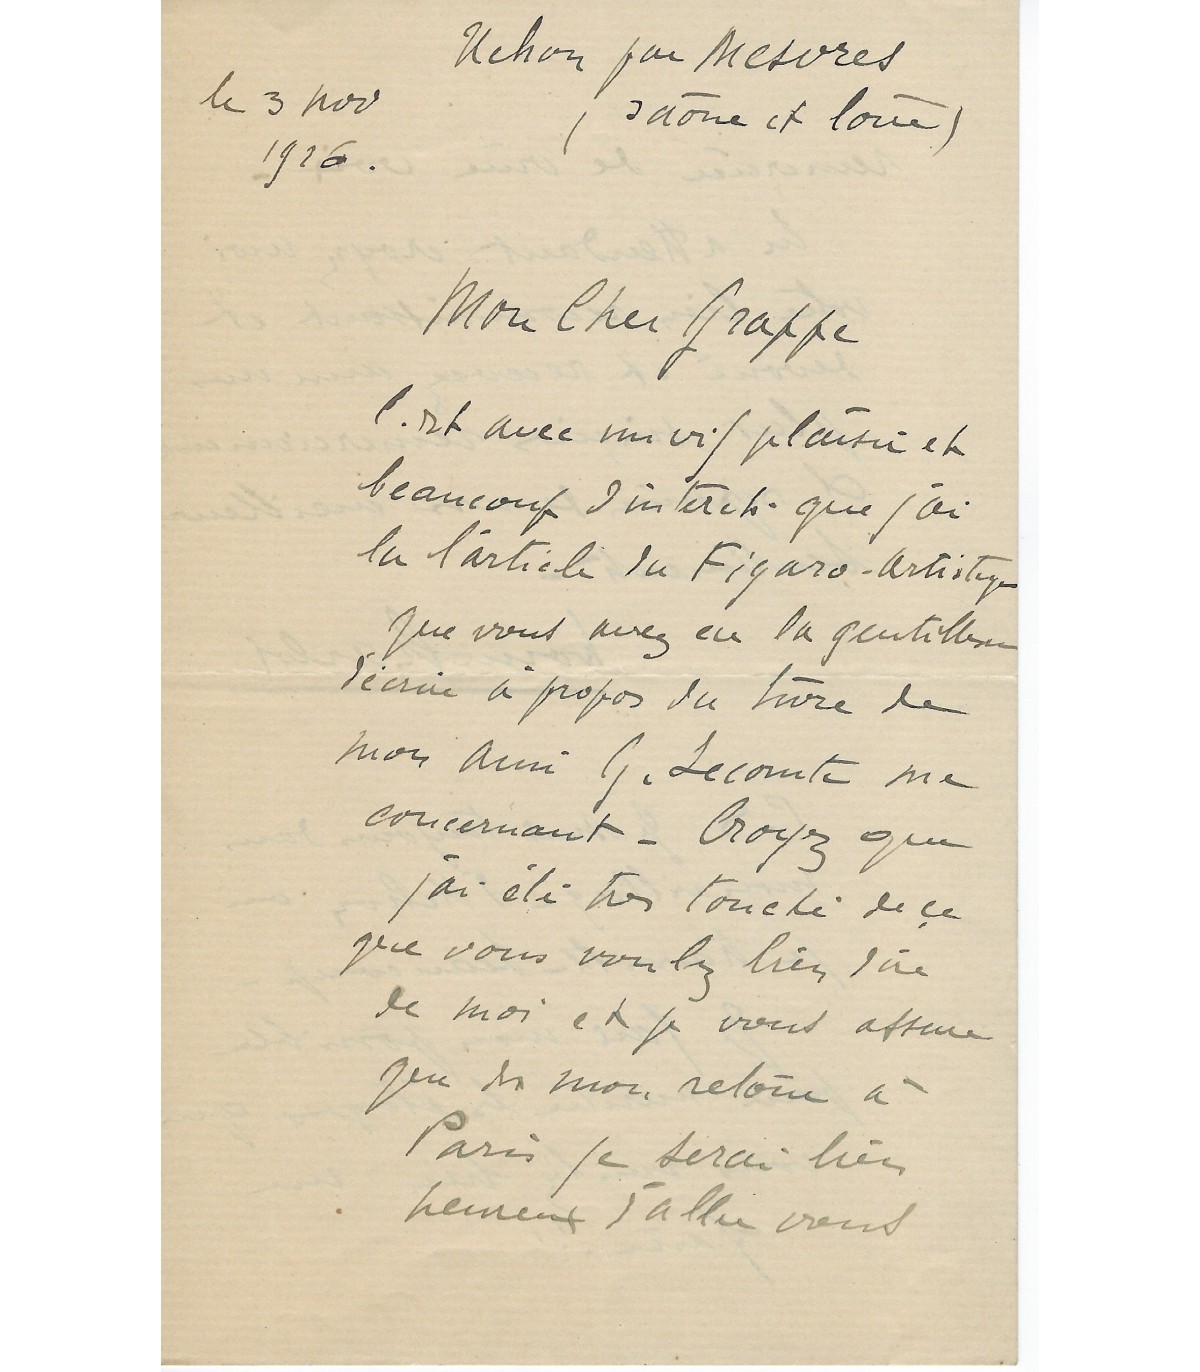 Uchon par Mesvres
le 3 nov (Saône et Loire)
1926.
Mon Cher Grappe
C'est avec un vif plaisir et
beaucoup d'interet que j'ai
lu l'article du Figaro-Artistique
que vous avez eu la gentillesse
d'écrire à propos du livre de
mon ami G. Lecomte me
concernant - Croyez que
j'ai été tres touché de ce
que vous voulez bien dire
de moi et je vous assure
que des mon retour à
Paris je serai bien
heureux d'aller vous